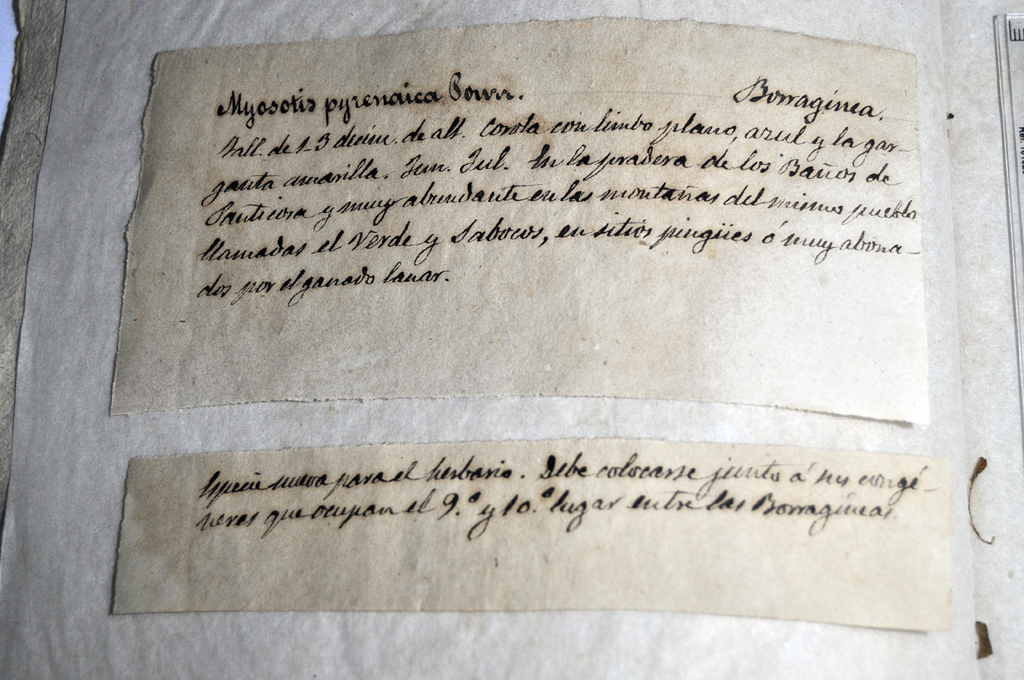 Myosotis pyrenaica Pourr. Borraginea.
Tall. de 1-3 decim. de alt. Corola con limbo plano, azul y la gar-
ganta amarilla. Jun. Jul. En la pradera de los Baños de
Panticosa y muy abundante en las montañas del mismo pueblo
llamadas el Verde y Sabocos, en sitios pingües ó muy abona-
dos por el ganado lanar.
Especie nueva para el herbario. Debe colocarse junto á sus congé-
neres que ocupan el 9.º y 10.º lugar entre las Borragineas.